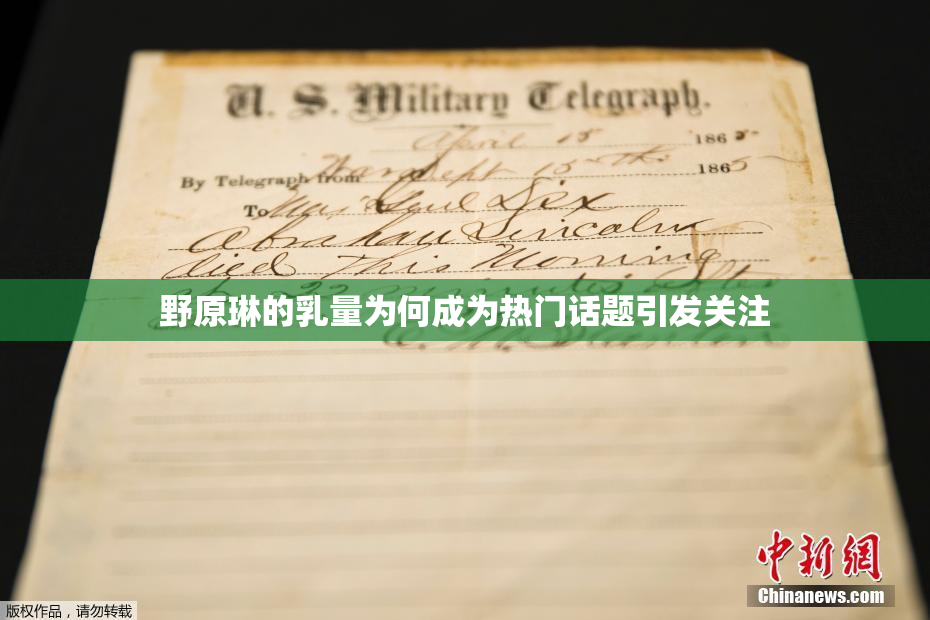 U. S. Military Telegraph.
April 15 1865
By Telegraph from War Dept 15th 1865
To Maj Genl Dix
Abraham Lincoln
died This Morning
at 22 minutes after
野原琳的乳量为何成为热门话题引发关注
E. M. Stanton
中新网
Chinanews.com
版权作品，请勿转载